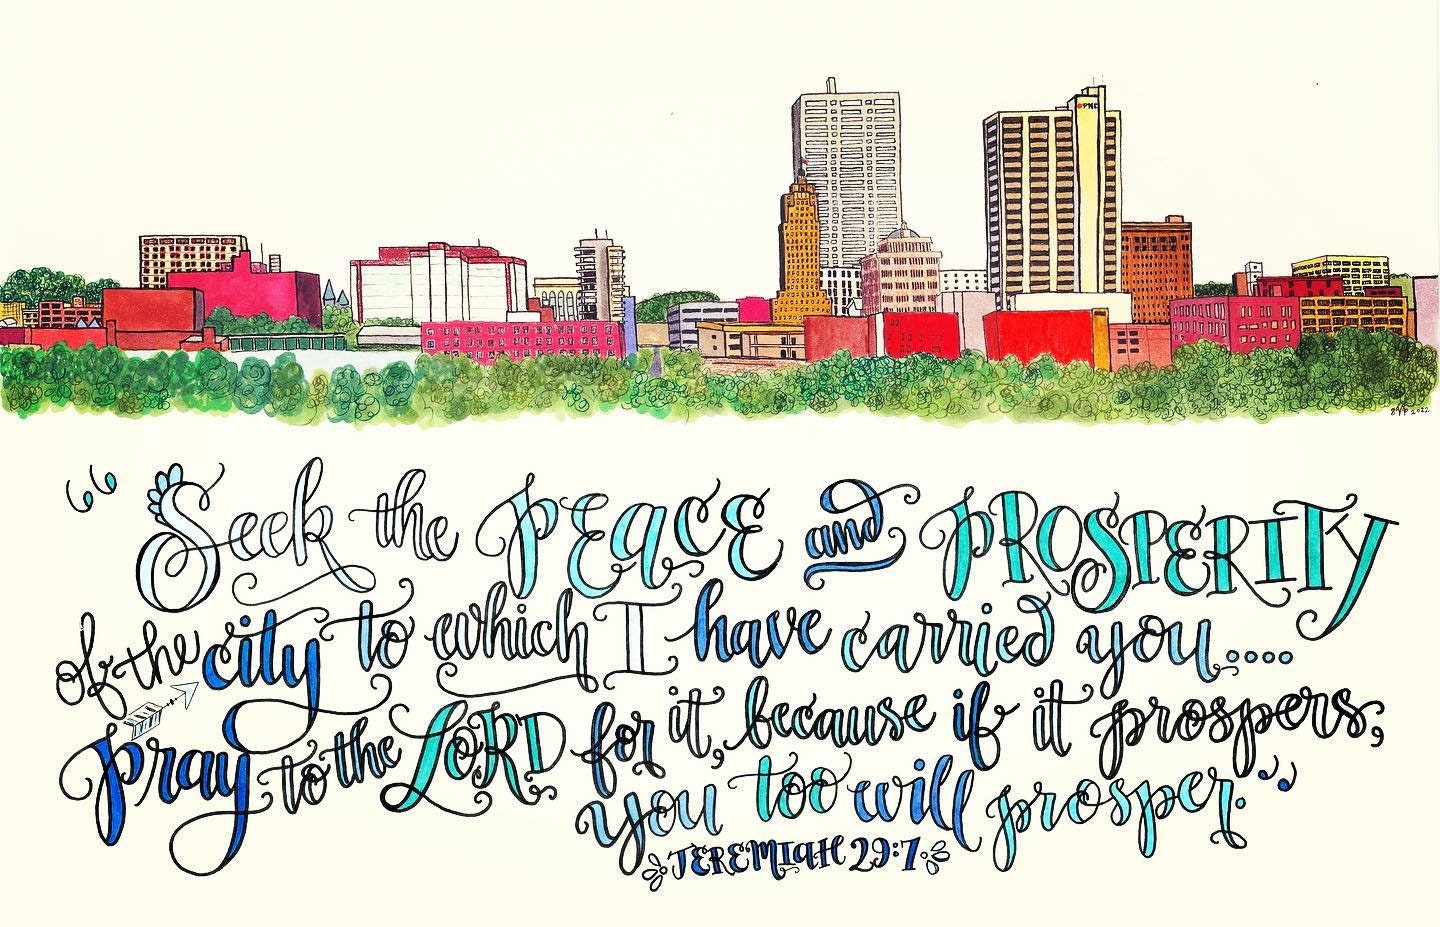 PNC
2022
“Seek the PEaCE and PROSPERITY
of the city to which I have carried you....
pray to the LORD for it, because if it prospers,
you too will prosper.”
JEREMIAH 29:7